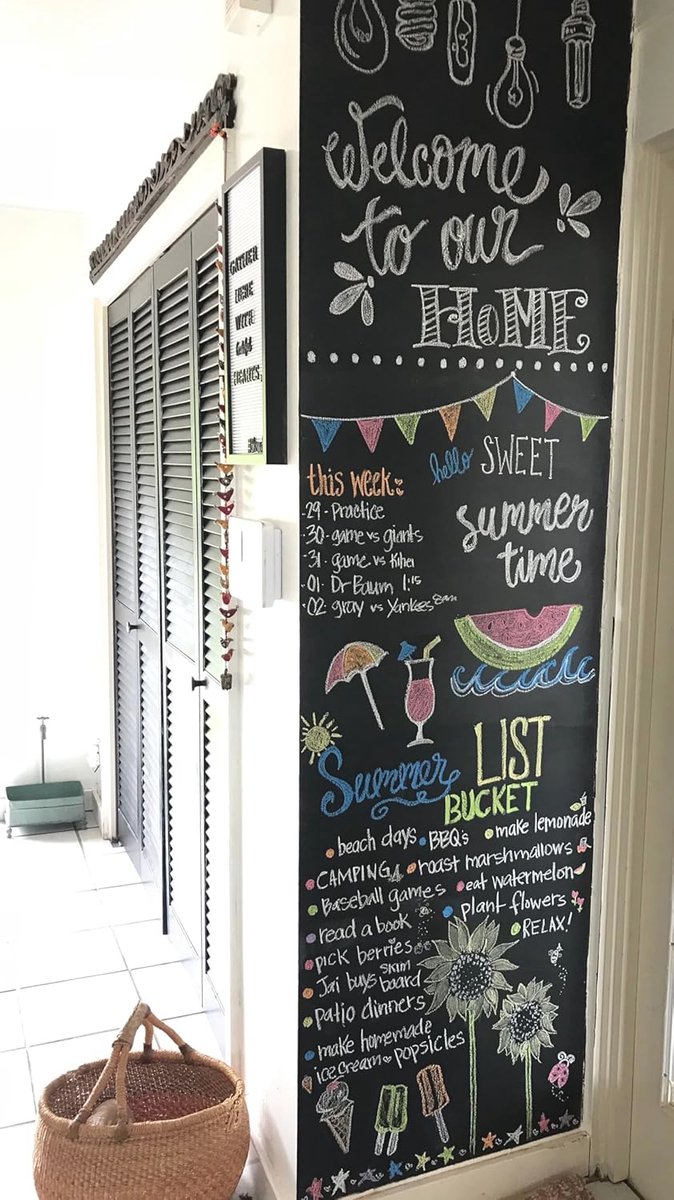 GATHER
HERE
WITH
HEARTS.
Welcome
to our
HOME
this week:
29 - Practice
30 - game vs giants
31 - game vs Kihei
01 - Dr Baum 1:15
02 - gray vs Yankees 8am
hello SWEET
summer
time
Summer LIST
BUCKET
beach days
BBQ's
make lemonade
CAMPING
roast marshmallows
Baseball games
eat watermelon
read a book
plant flowers
pick berries
RELAX!
Jai buys SKIM
board
patio dinners
make homemade
ice cream popsicles